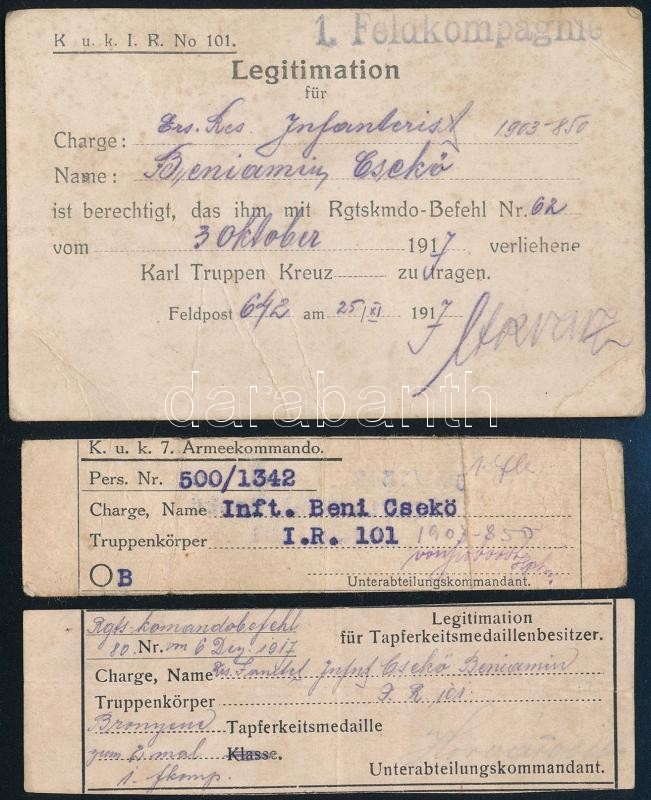 K. u. k. I. R. No 101.
1. Feldkompagnie
Legitimation
für
Charge: Ers. Res. Infanterist 1903-850
Name: Beniamin Csekö
ist berechtigt, das ihm mit Rgtskmdo-Befehl Nr. 62
vom 3 Oktober 1917 verliehene
Karl Truppen Kreuz zu tragen.
Feldpost 642 am 25/XI 1917
darabanth
K. u. k. 7. Armeekommando.
Pers. Nr. 500/1342
Charge, Name Inft. Beni Csekö
Truppenkörper I.R. 101 1903-850
B
Unterabteilungskommandant.
Rgts-komandobefehl
80 Nr. vom 6 Dez. 1917
Legitimation
für Tapferkeitsmedaillenbesitzer.
Charge, Name Infst Csekö Beniamin
Truppenkörper I. R. 101
Bronzene Tapferkeitsmedaille
zum 2 mal Klasse.
1. fkomp.
Unterabteilungskommandant.